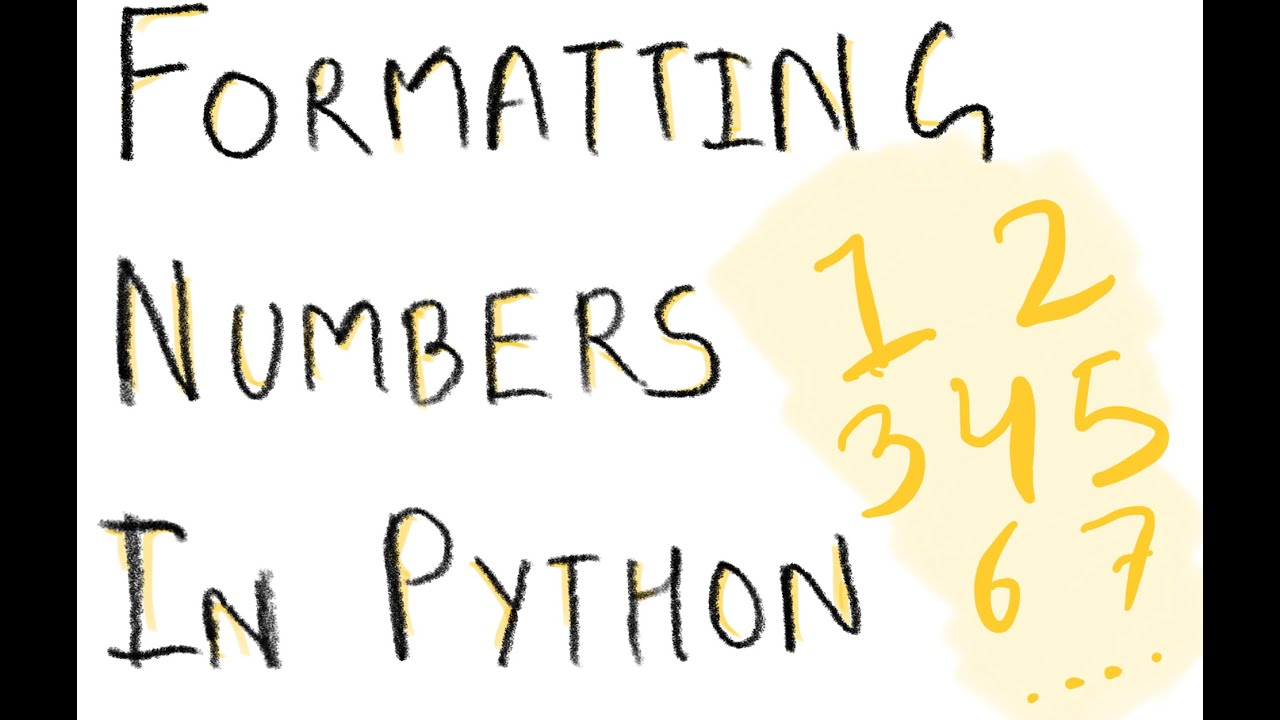 FORMATTING
NUMBERS
IN PYTHON
1 2
3 4 5
6 7
....